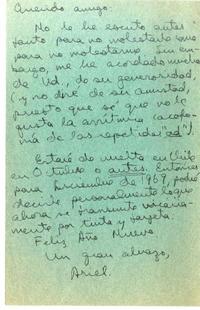 Querido amigo:
No le he escrito antes
tanto para no molestarlo como
para no molestarme. Sin em-
bargo, me he acordado mucho
de Ud., de su generosidad,
(y no diré de su amistad,
puesto que sé que no le
gusta la arritmia (acofo-
nía de las repetidas "ad").
Estaré de vuelta en Chile
en Octubre o antes. Entonces
para Diciembre de 1969, podré
decirle personalmente lo que
ahora se transmite
mente por tinta y tarjeta.
Feliz Año Nuevo.
Un gran abrazo,
Ariel.